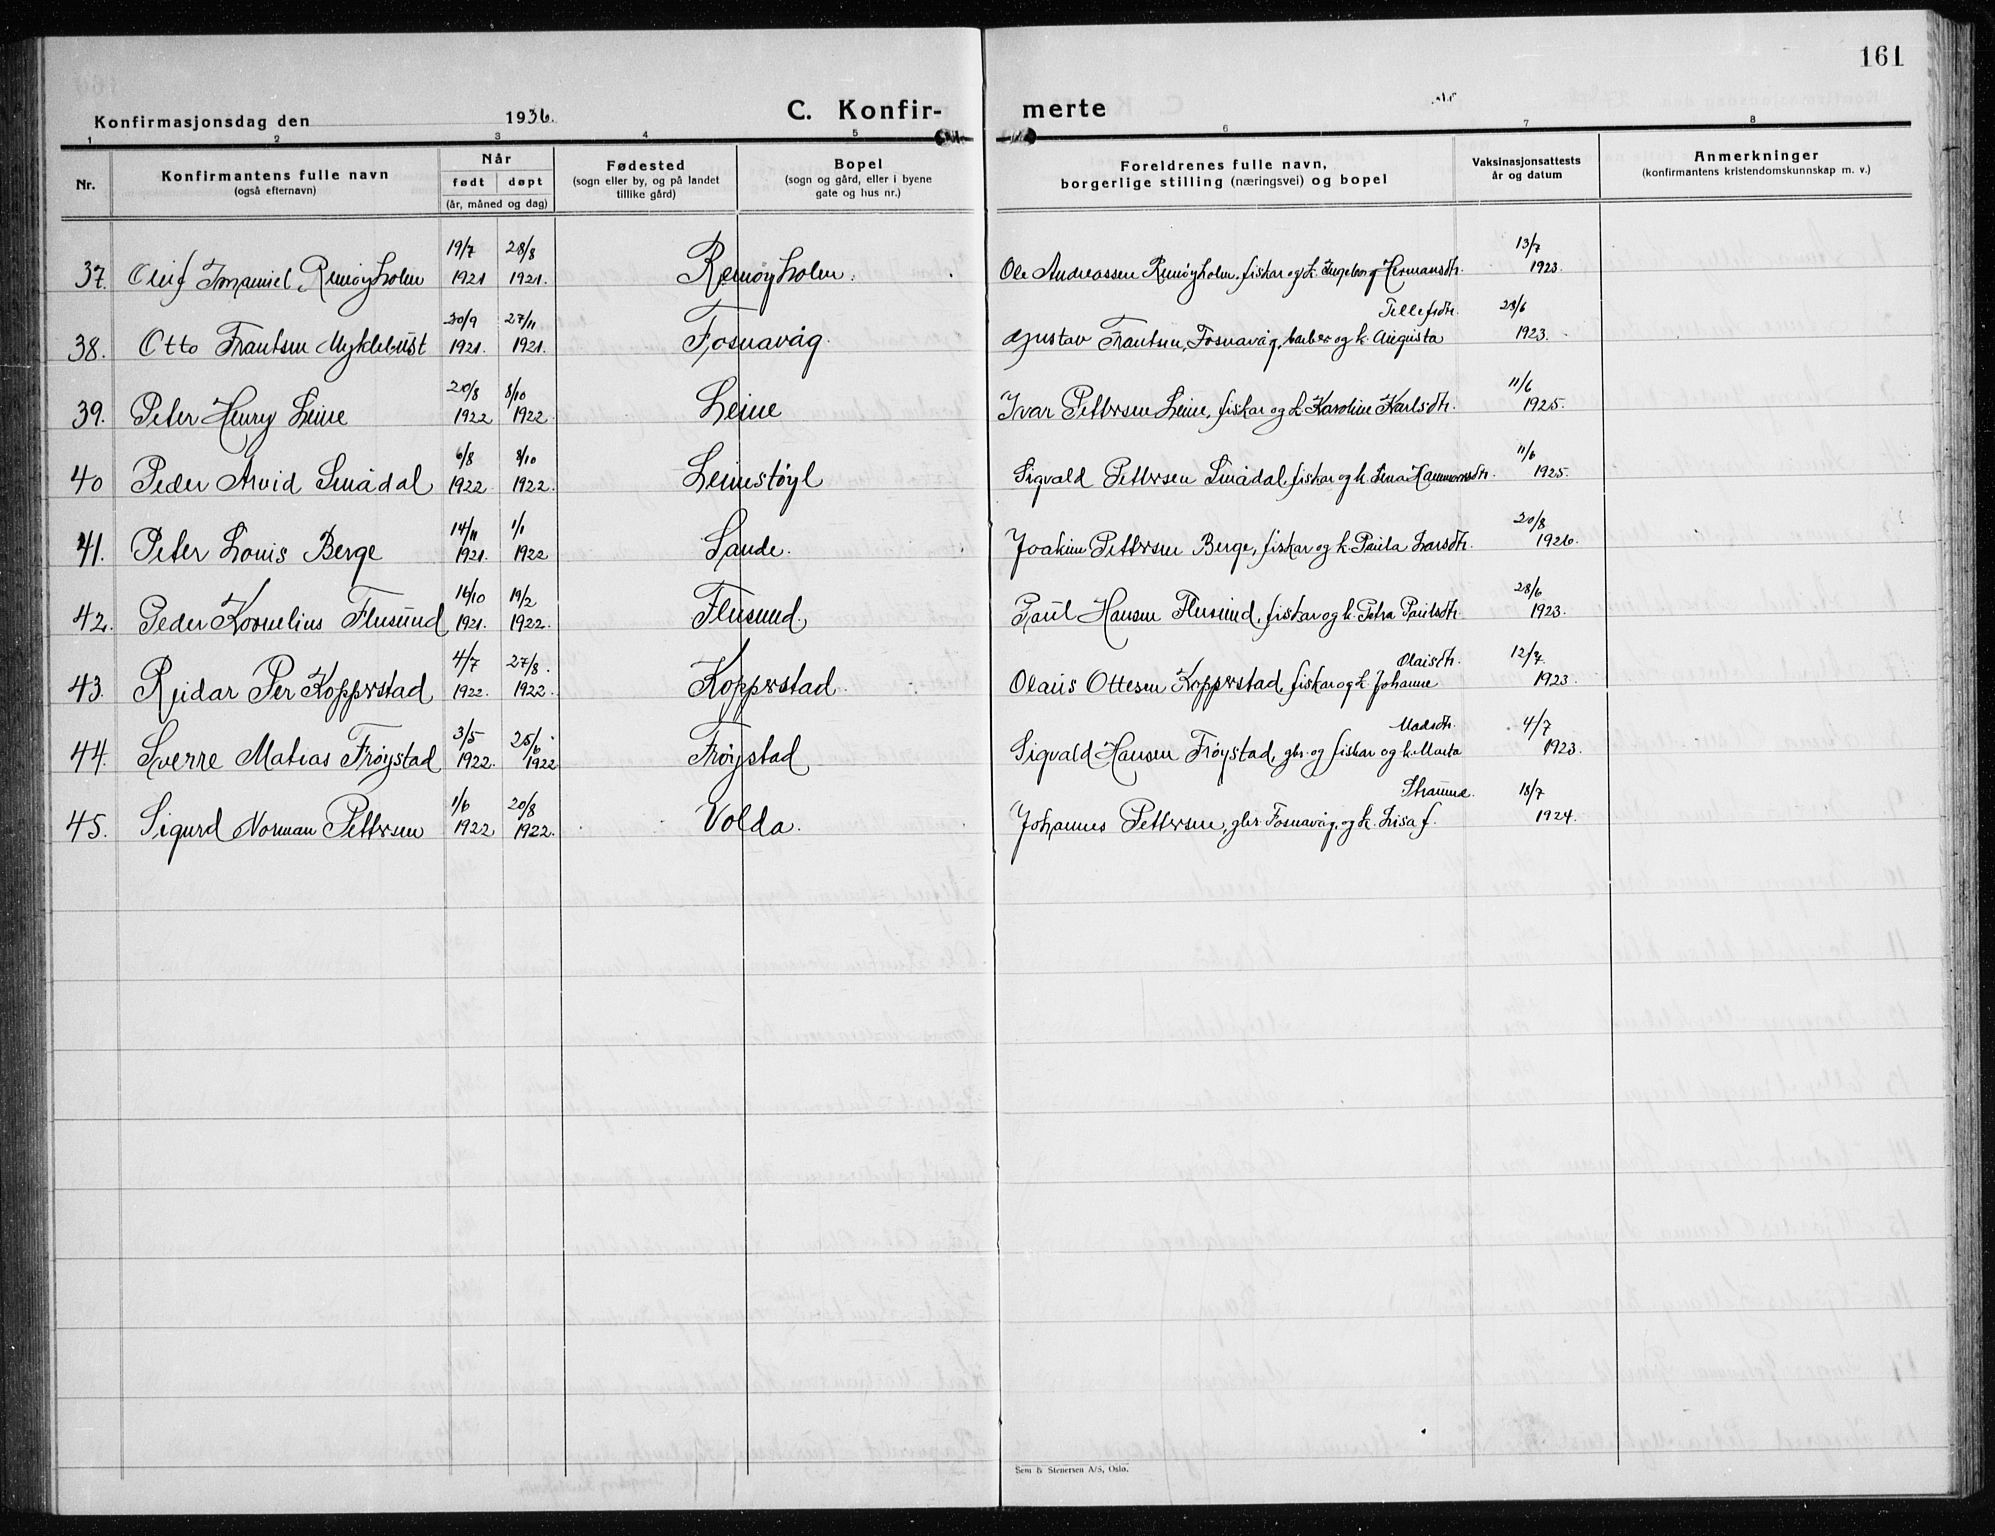 161
Konfirmasjonsdag den 1936.
C. Konfir-
merte
1 2 3 4 5 6 7 8
Nr.
Konfirmantens fulle navn
(også efternavn)
Når
født døpt
(år, måned og dag)
Fødested
(sogn eller by, og på landet
tillike gård)
Bopel
(sogn og gård, eller i byene
gate og hus nr.)
Foreldrenes fulle navn,
borgerlige stilling (næringsvei) og bopel
Vaksinasjonsattests
år og datum
Anmerkninger
(konfirmantens kristendomskunnskap m. v.)
19/7 28/8 13/7
37. Oluf Imanuel Remøyholm 1921 1921. Remøyholm. Ole Andreassen Remøyholm, fiskar og k. Ingeborg Hermansdtr. 1923.
20/9 27/11 Tellefsdtr. 28/6
38. Otto Frantsen Myklebust 1921. 1921. Fosnavåg. Gustav Frantsen, Fosnavåg, barber og k. Augusta 1923.
20/8 8/10 11/6
39. Peter Henry Leine 1922 1922. Leine Ivar Pettersen Leine, fiskar og k. Karoline Karlsdtr. 1925.
6/8 8/10 11/6
40 Peder Arvid Smådal 1922 1922. Leinestøyl Sigvald Pettersen Smådal, fiskar og k. Lina 1925.
14/11 1/1 20/8
41. Peter Louis Berge 1921. 1922 Sande. Joakim Pettersen Berge, fiskar og k. Paula Larsdtr. 1926.
16/10 19/2 28/6
42. Peder Kornelius Flusund 1921. 1922. Flusund. Paul Hansen Flusund, fiskar og k. Petra Paulsdtr. 1923.
4/7 27/8. Olaisdtr. 12/7.
43. Reidar Per Kopperstad 1922. 1922. Kopperstad. Olaus Ottesen Kopperstad, fiskar og k. Johanne 1923.
3/5 25/6 Madsdtr. 4/7
44. Sverre Matias Frøystad 1922. 1922 Frøystad Sigvald Hansen Frøystad, gbr. og fiskar og k. Marta 1923.
1/6 20/8 Straume. 18/7
45. Sigurd Norman Pettersen 1922 1922. Volda. Johannes Pettersen, gbr. Fosnavåg, og k. Lisa f. 1924.
Sem & Stenersen A/S, Oslo.